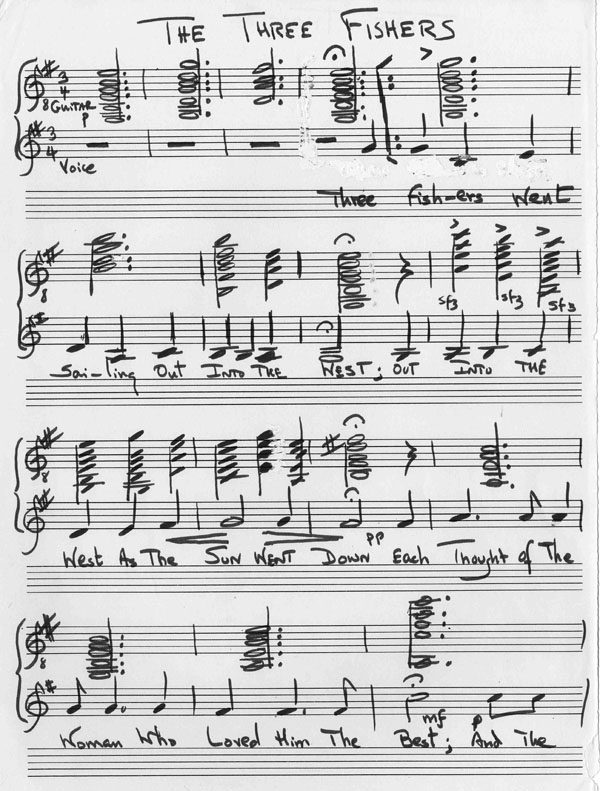 THE THREE FISHERS
3 4
8 GUITAR
p
3 4
Voice
Three Fish-ers Went
8
sf3 sf3 sf3
Sai-ling Out INTO THE WEST; OUT INTO THE
8
pp
West As The SUN WENT DOWN Each Thought of The
8
mf p
Woman Who Loved Him The Best; And The